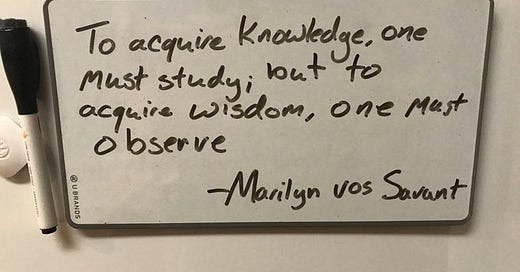 To acquire Knowledge, one
must study; but to
acquire wisdom, one must
observe
-Marilyn vos Savant
U BRANDS